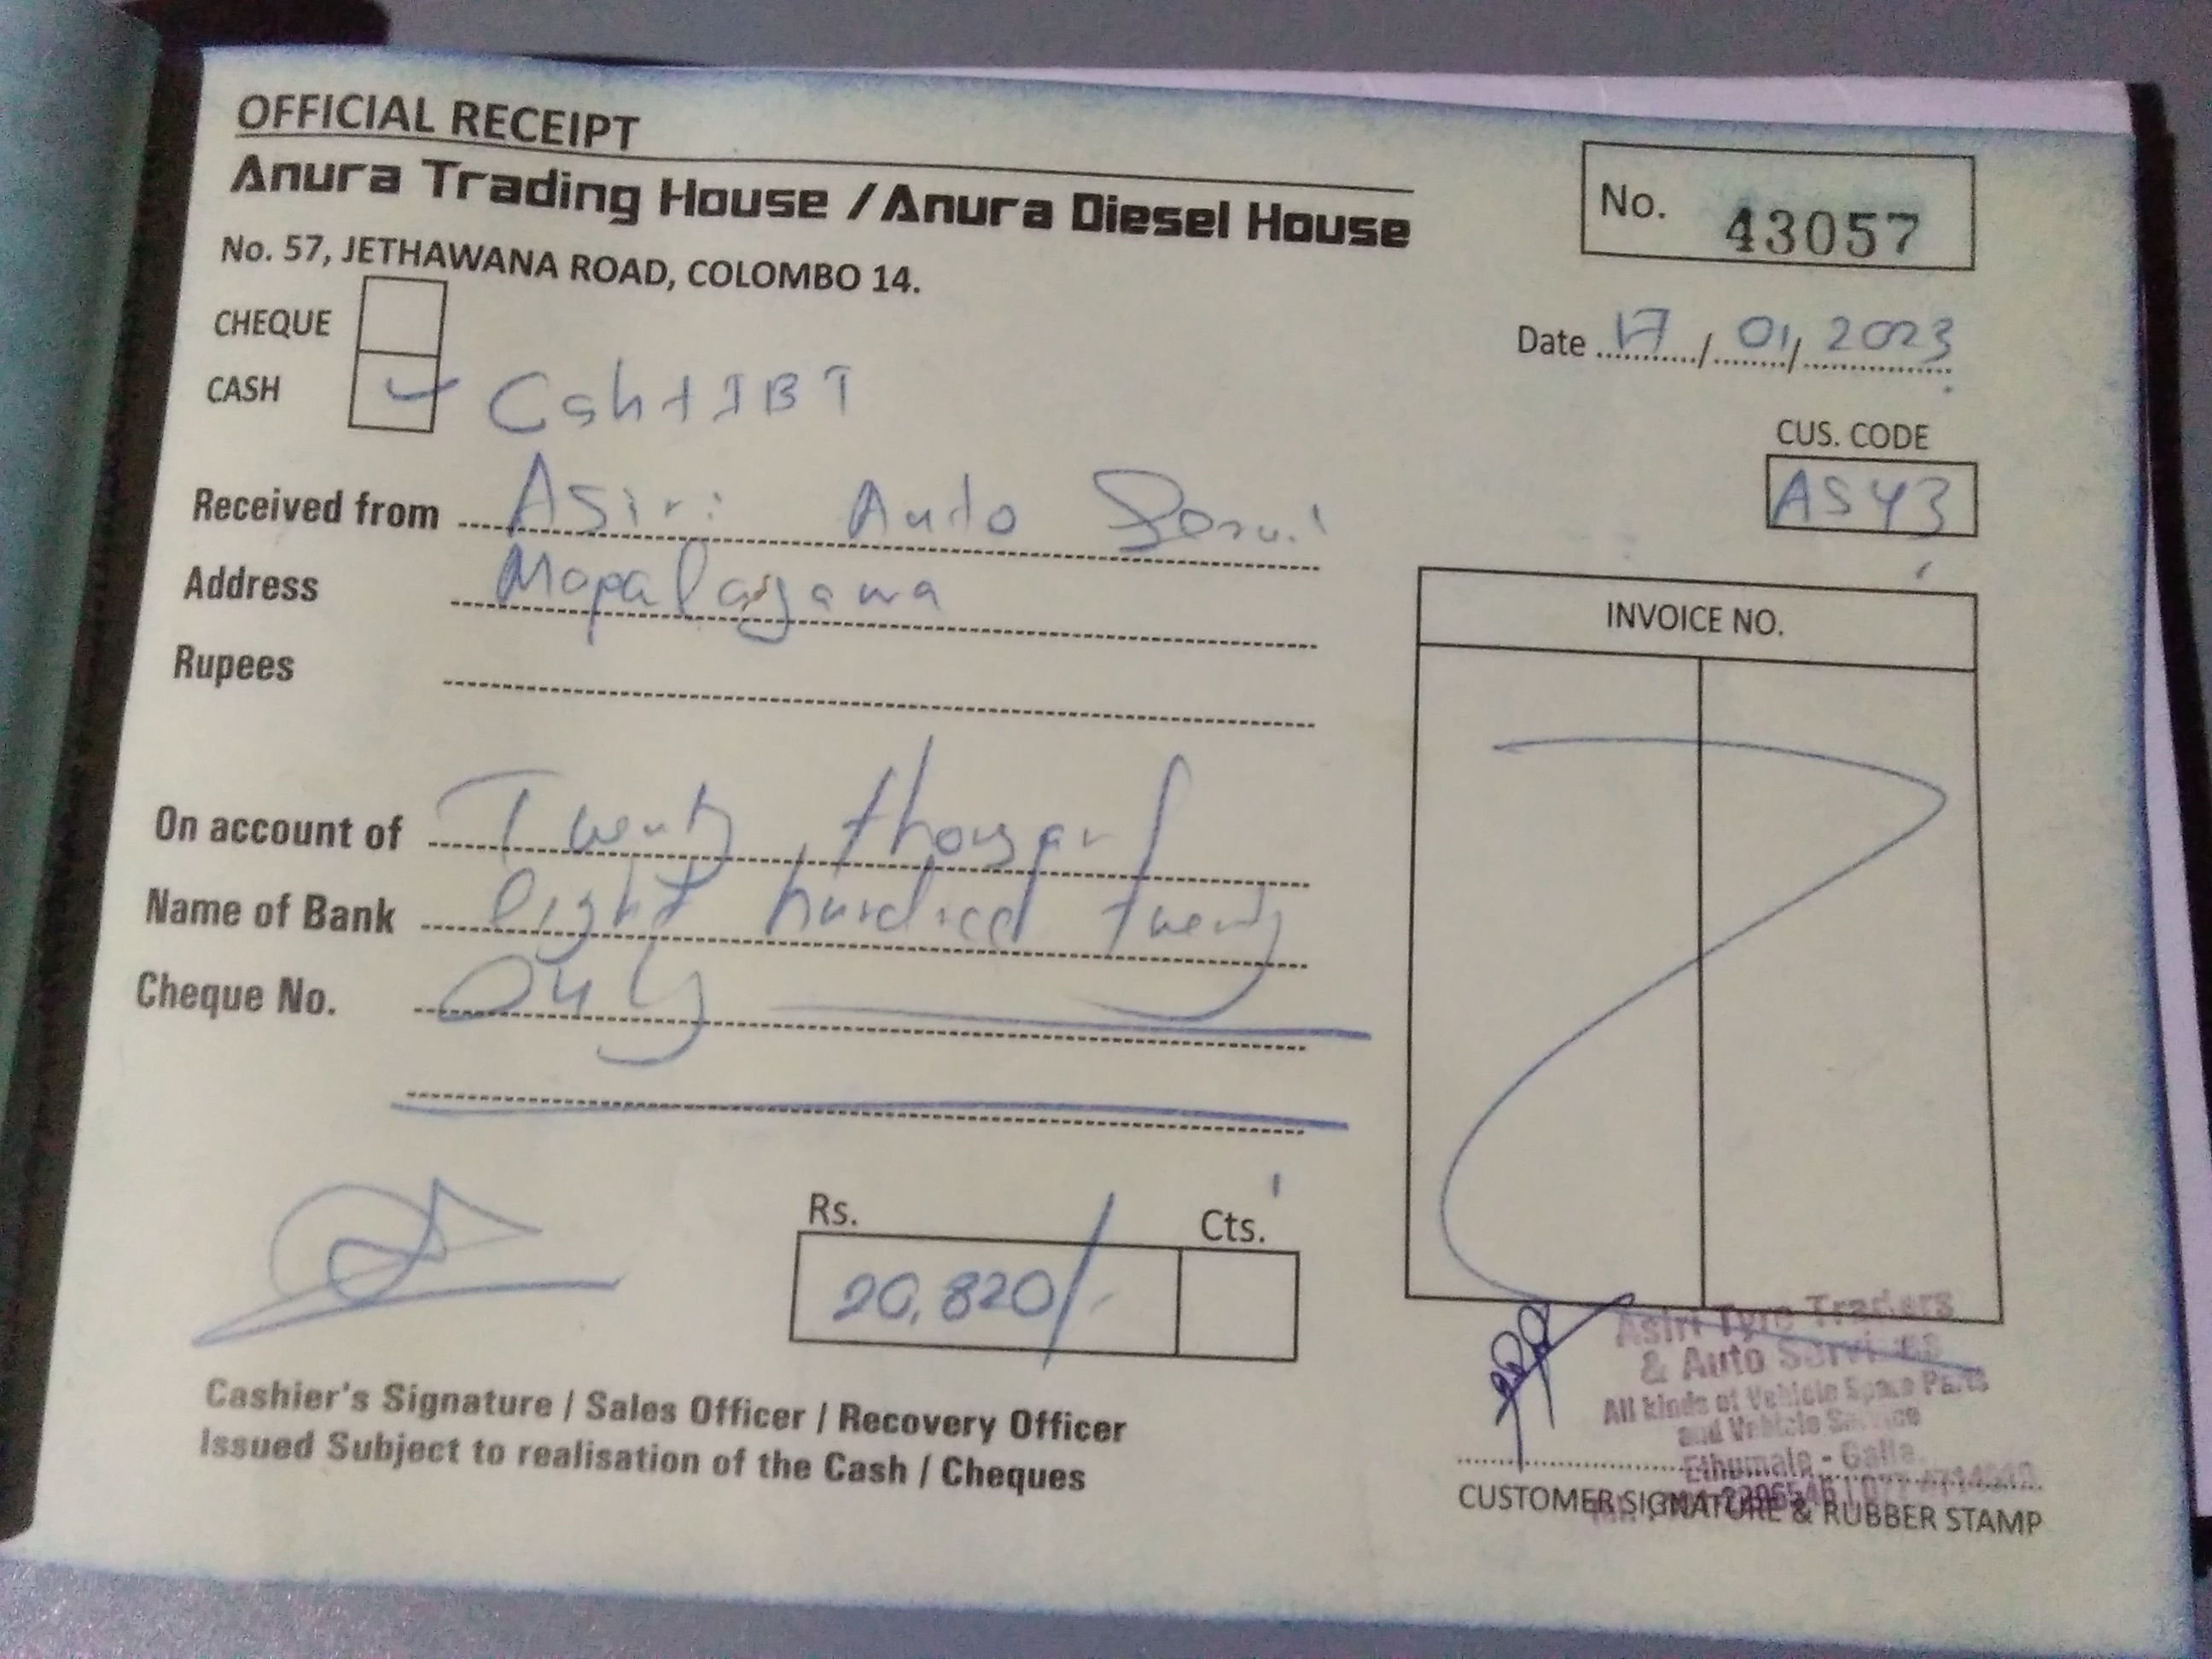 OFFICIAL RECEIPT
Anura Trading House / Anura Diesel House
No. 57, JETHAWANA ROAD, COLOMBO 14.
No. 43057
Date 17 / 01 / 2023
CHEQUE
CASH Csh+IBT
CUS. CODE
AS43
Received from Asiri Auto
Address Mapalagama
Rupees
INVOICE NO.
On account of Twenty thousand
Name of Bank eight hundred twenty
Cheque No. Only
Rs. Cts.
20,820/-
Cashier's Signature / Sales Officer / Recovery Officer
Issued Subject to realisation of the Cash / Cheques
Asiri Tyre Traders
& Auto Services
All kinds of Vehicle Spare Parts
and Vehicle Service
Ethumale - Galle.
CUSTOMER SIGNATURE & RUBBER STAMP